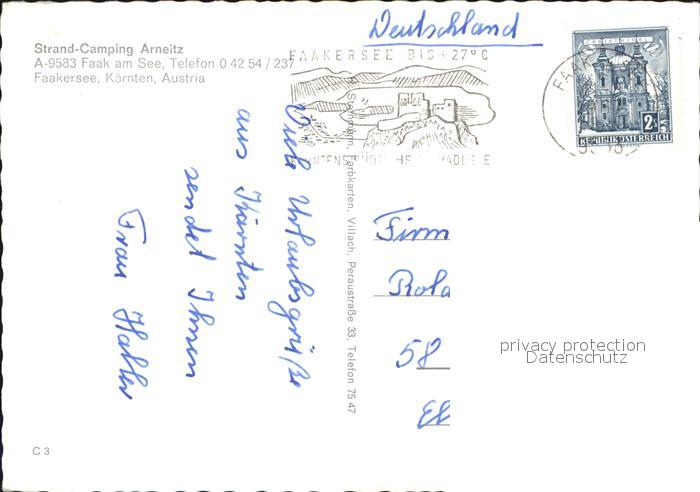 Strand-Camping Arneitz
A-9583 Faak am See, Telefon 0 42 54 / 237
Faakersee, Kärnten, Austria
Deutschland
FAAKERSEE BIS +27°C
REPUBLIK ÖSTERREICH
2
Viele Urlaubsgrüße
aus Kärnten
sendet Ihnen
Frau Haller
Farbkarten, Villach, Peraustraße 33, Telefon 75 47
Firm
Rola
58
El
privacy protection
Datenschutz
C 3